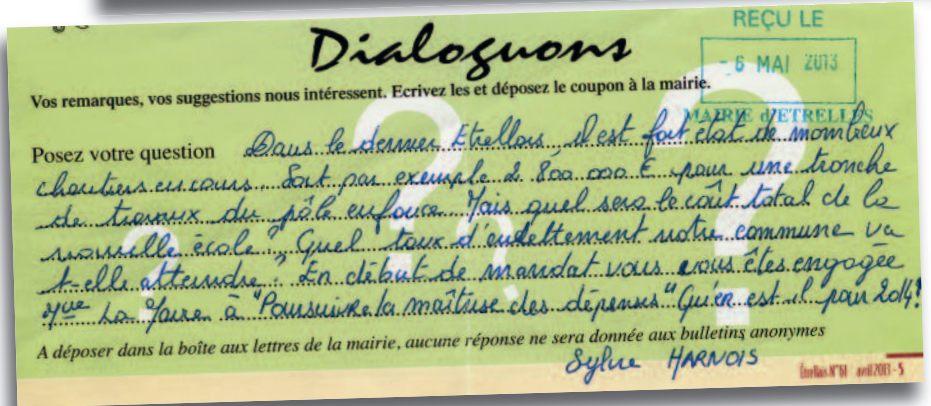 Dialoguons
REÇU LE
- 6 MAI 2013
MAIRIE d'ETRELLES
Vos remarques, vos suggestions nous intéressent. Ecrivez les et déposez le coupon à la mairie.
Posez votre question Dans le dernier Etrellais il est fait état de nombreux
chantiers en cours. Soit par exemple 2 800 000 € pour une tranche
de travaux du pôle enfance. Mais quel sera le coût total de la
nouvelle école ? Quel taux d'endettement notre commune va
t-elle atteindre. En début de mandat vous vous êtes engagée
Mme La Maire à "Poursuivre la maîtrise des dépenses" Qu'en est il pour 2014?
A déposer dans la boîte aux lettres de la mairie, aucune réponse ne sera donnée aux bulletins anonymes
Sylvie HARNOIS
Étrellais N°61 avril 2013 - 5